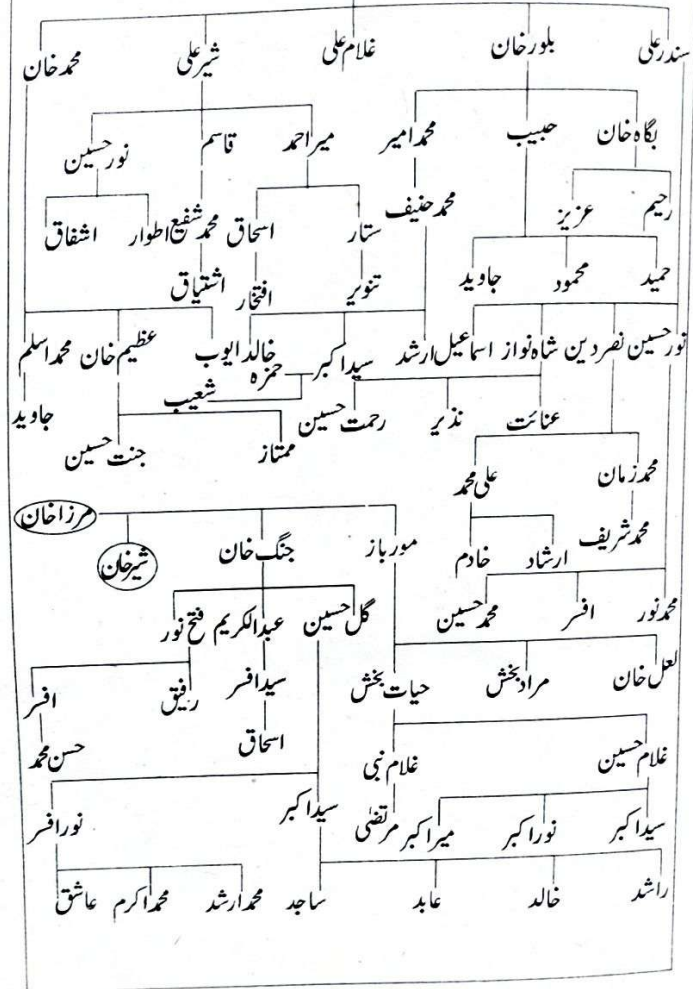 سندر علی بلور خان غلام علی شیر علی محمد خان
بگاہ خان حبیب محمد امیر میر احمد قاسم نور حسین
رحیم عزیز محمد حنیف ستار اسحاق محمد شفیع اطوار اشفاق
حمید محمود جاوید تنویر افتخار اشتیاق
نور حسین نصر دین شاہ نواز اسماعیل ارشد سید اکبر خالد ایوب عظیم خان محمد اسلم
حمزہ
شعیب
عنائت نذیر رحمت حسین ممتاز جنت حسین جاوید
محمد زمان علی محمد
محمد شریف ارشاد خادم مور باز جنگ خان شیر خان مرزا خان
محمد نور افسر محمد حسین گل حسین عبدالکریم فتح نور
لعل خان مراد بخش حیات بخش سید افسر رفیق افسر
اسحاق حسن محمد
غلام حسین غلام نبی
سید اکبر نور اکبر میر اکبر مرتضیٰ سید اکبر نور افسر
راشد خالد عابد ساجد محمد ارشد محمد اکرم عاشق